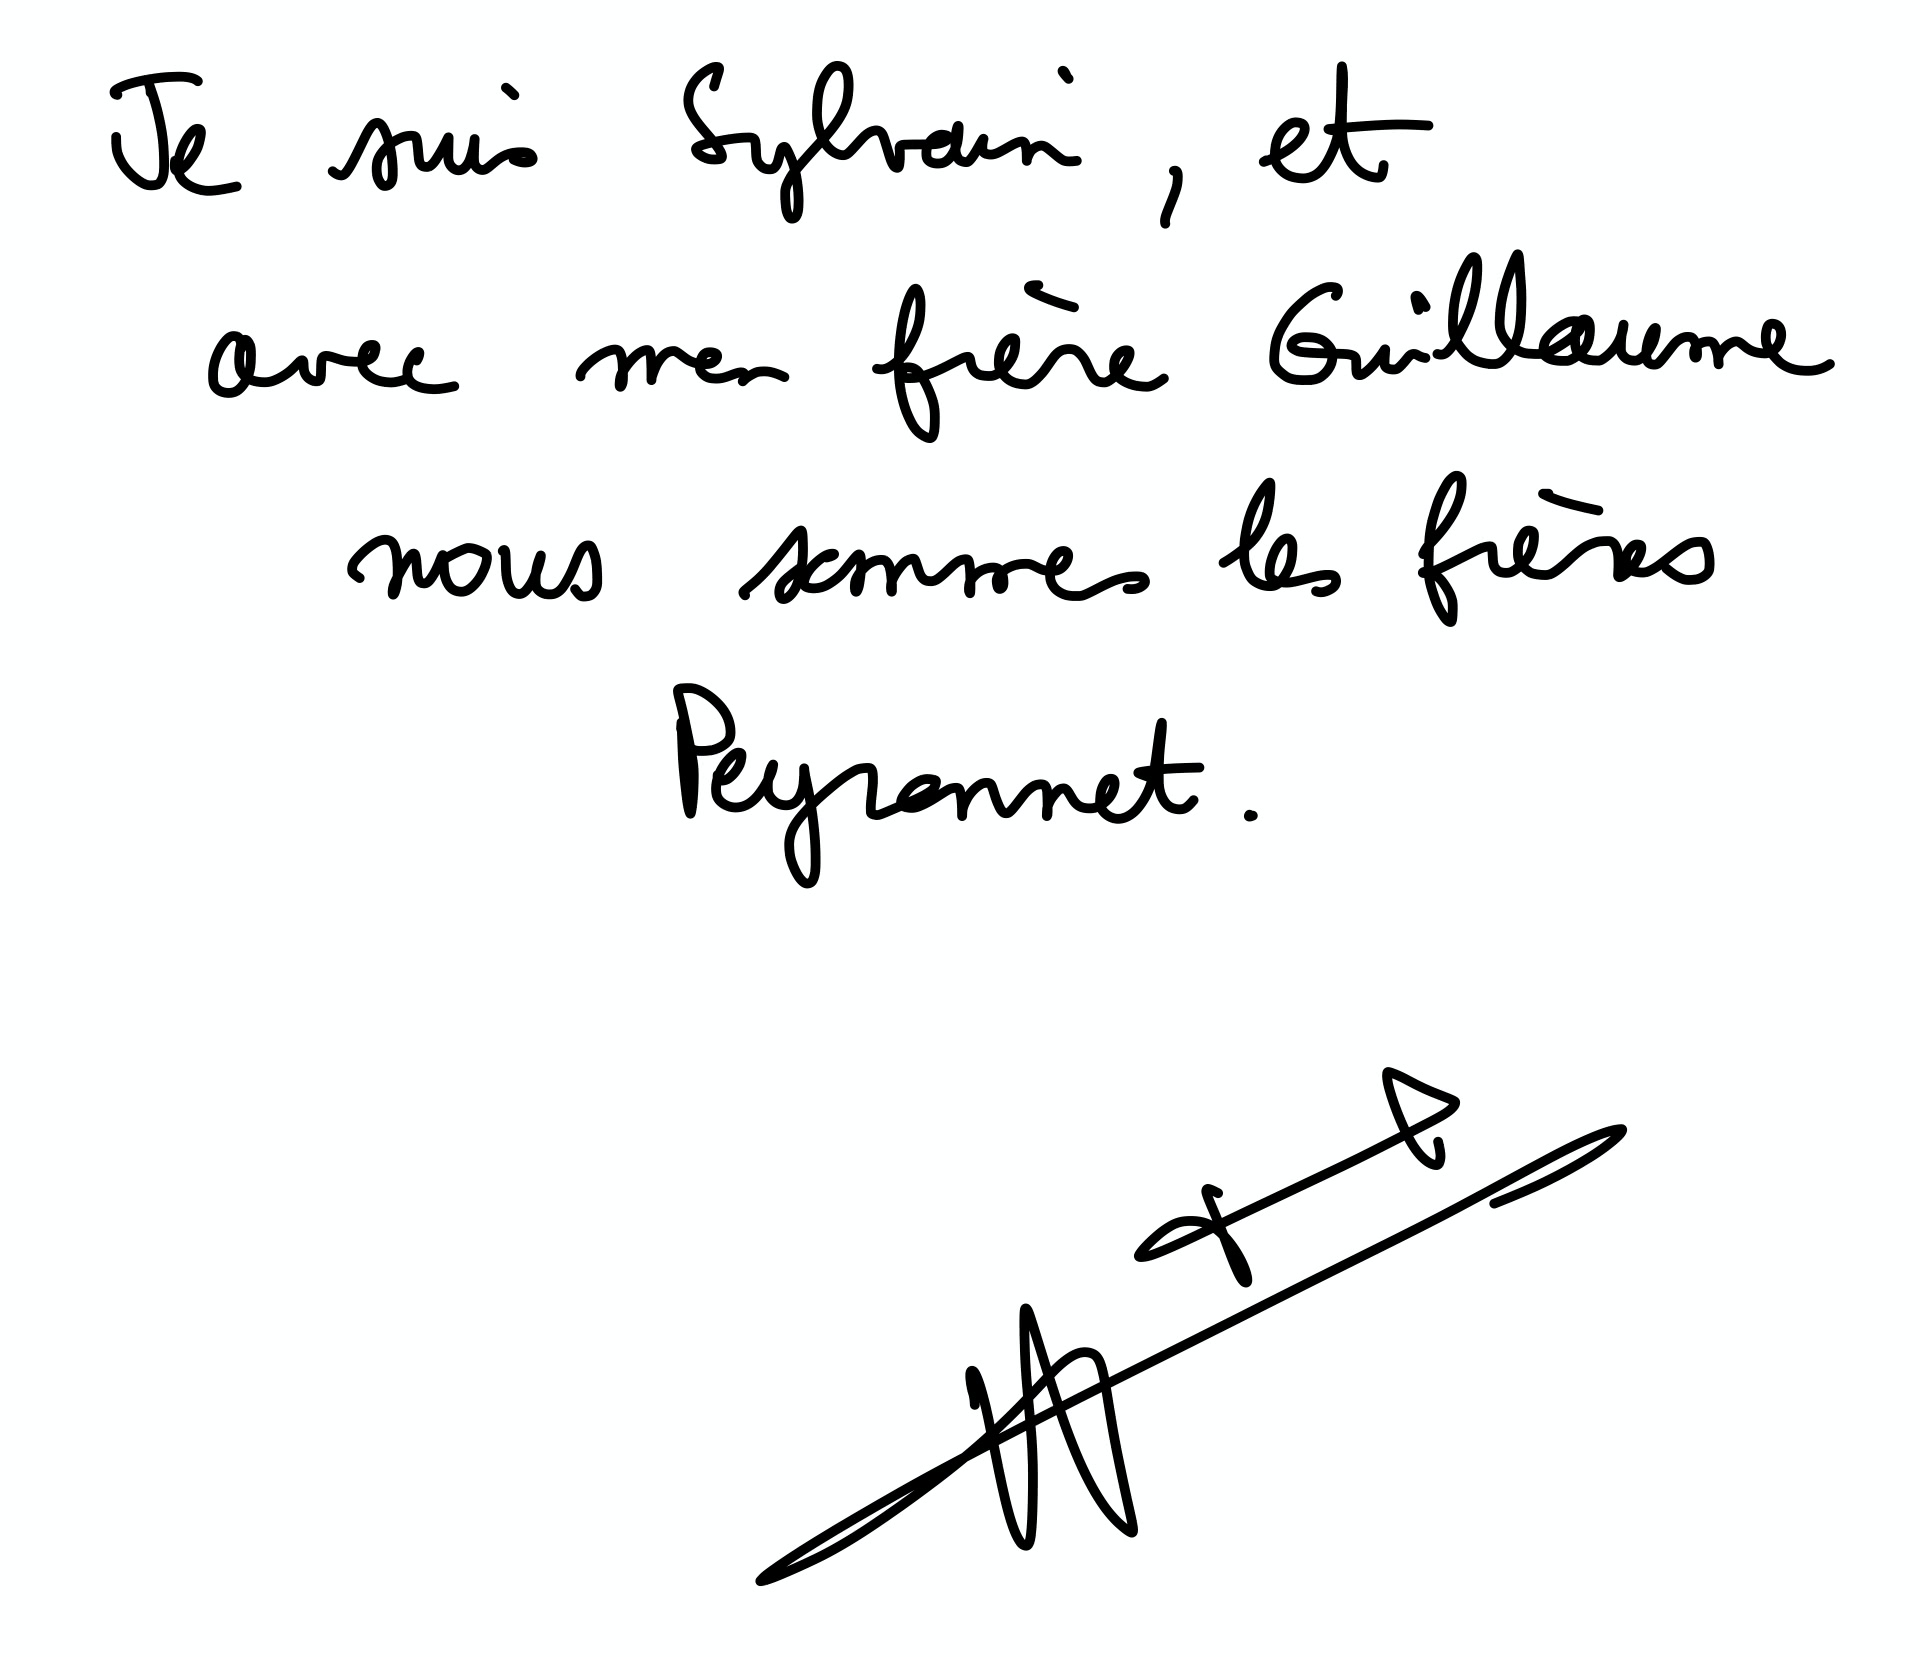 Je suis Sylvain, et
avec mon frère Guillaume
nous sommes les frères
Peyronnet.